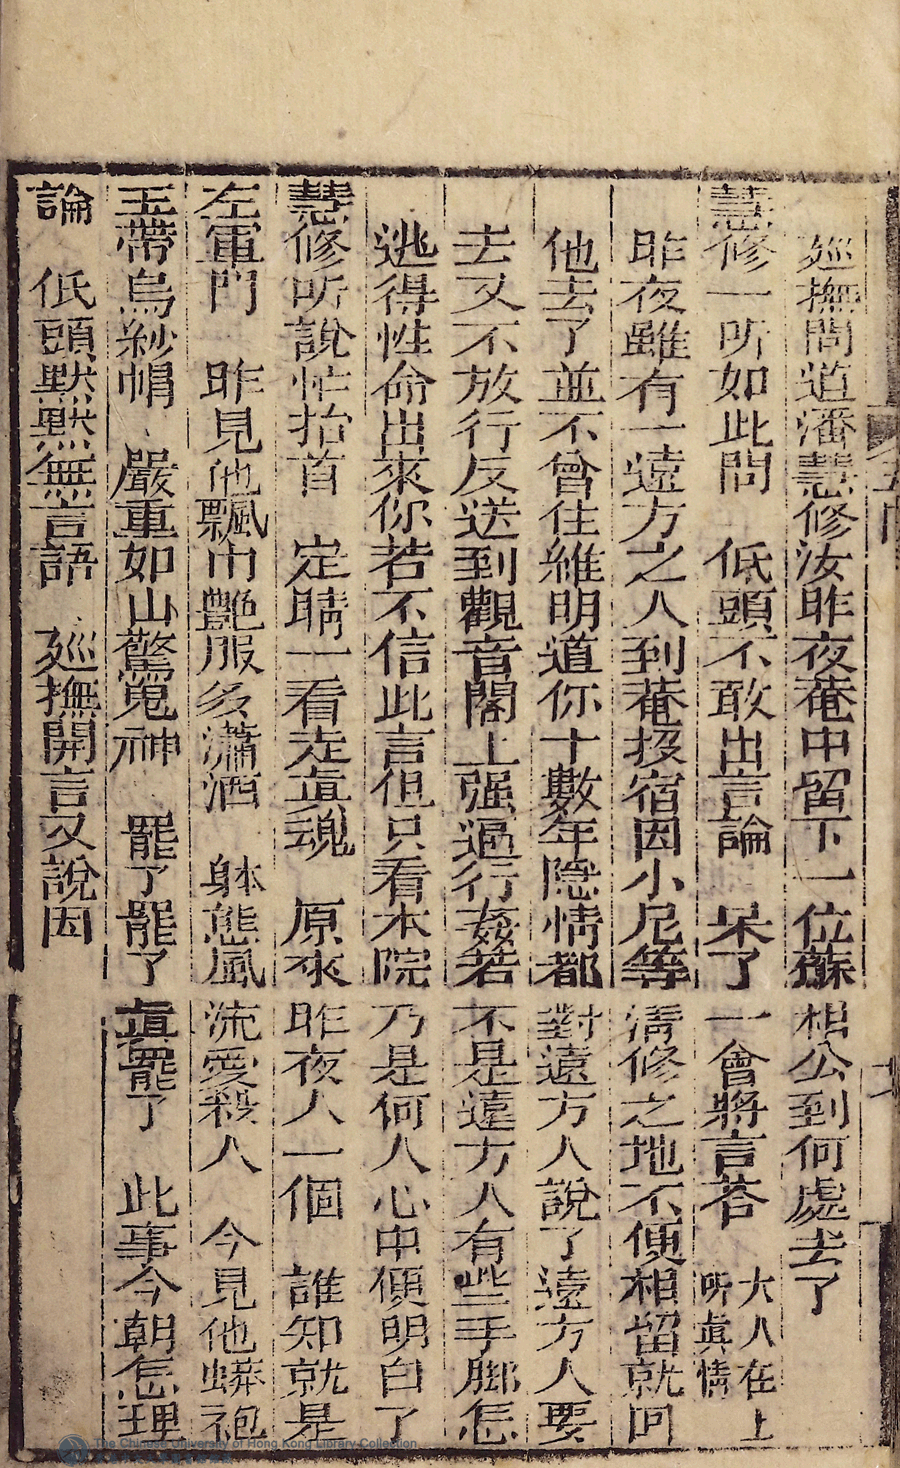 廵撫問道潘慧修汝昨夜菴中留下一位蘇相公到何處去了
慧修一听如此問 低頭不敢出言論 呆了一會將言荅 大人在上听眞情
昨夜雖有一遠方之人到菴投宿因小尼等清修之地不便相留就回
他去了並不曾住維明道你十數年隐情都對遠方人說了遠方人要
去又不放行反送到觀音閣上强逼行姦若不是遠方人有些手脚怎
逃得性命出來你若不信此言但只看本院乃是何人心中便明白了
慧修听說忙抬首 定睛一看走眞魂 原來昨夜人一個 誰知就是
左軍門 昨見他飄巾艷服多瀟洒 身体態風流愛殺人 今見他蟒袍
玉帶烏紗帽 嚴重如山驚鬼神 罷了罷了眞罷了 此事今朝怎理
論 低頭默默無言語 廵撫開言又說因
The Chinese University of Hong Kong Library Collection